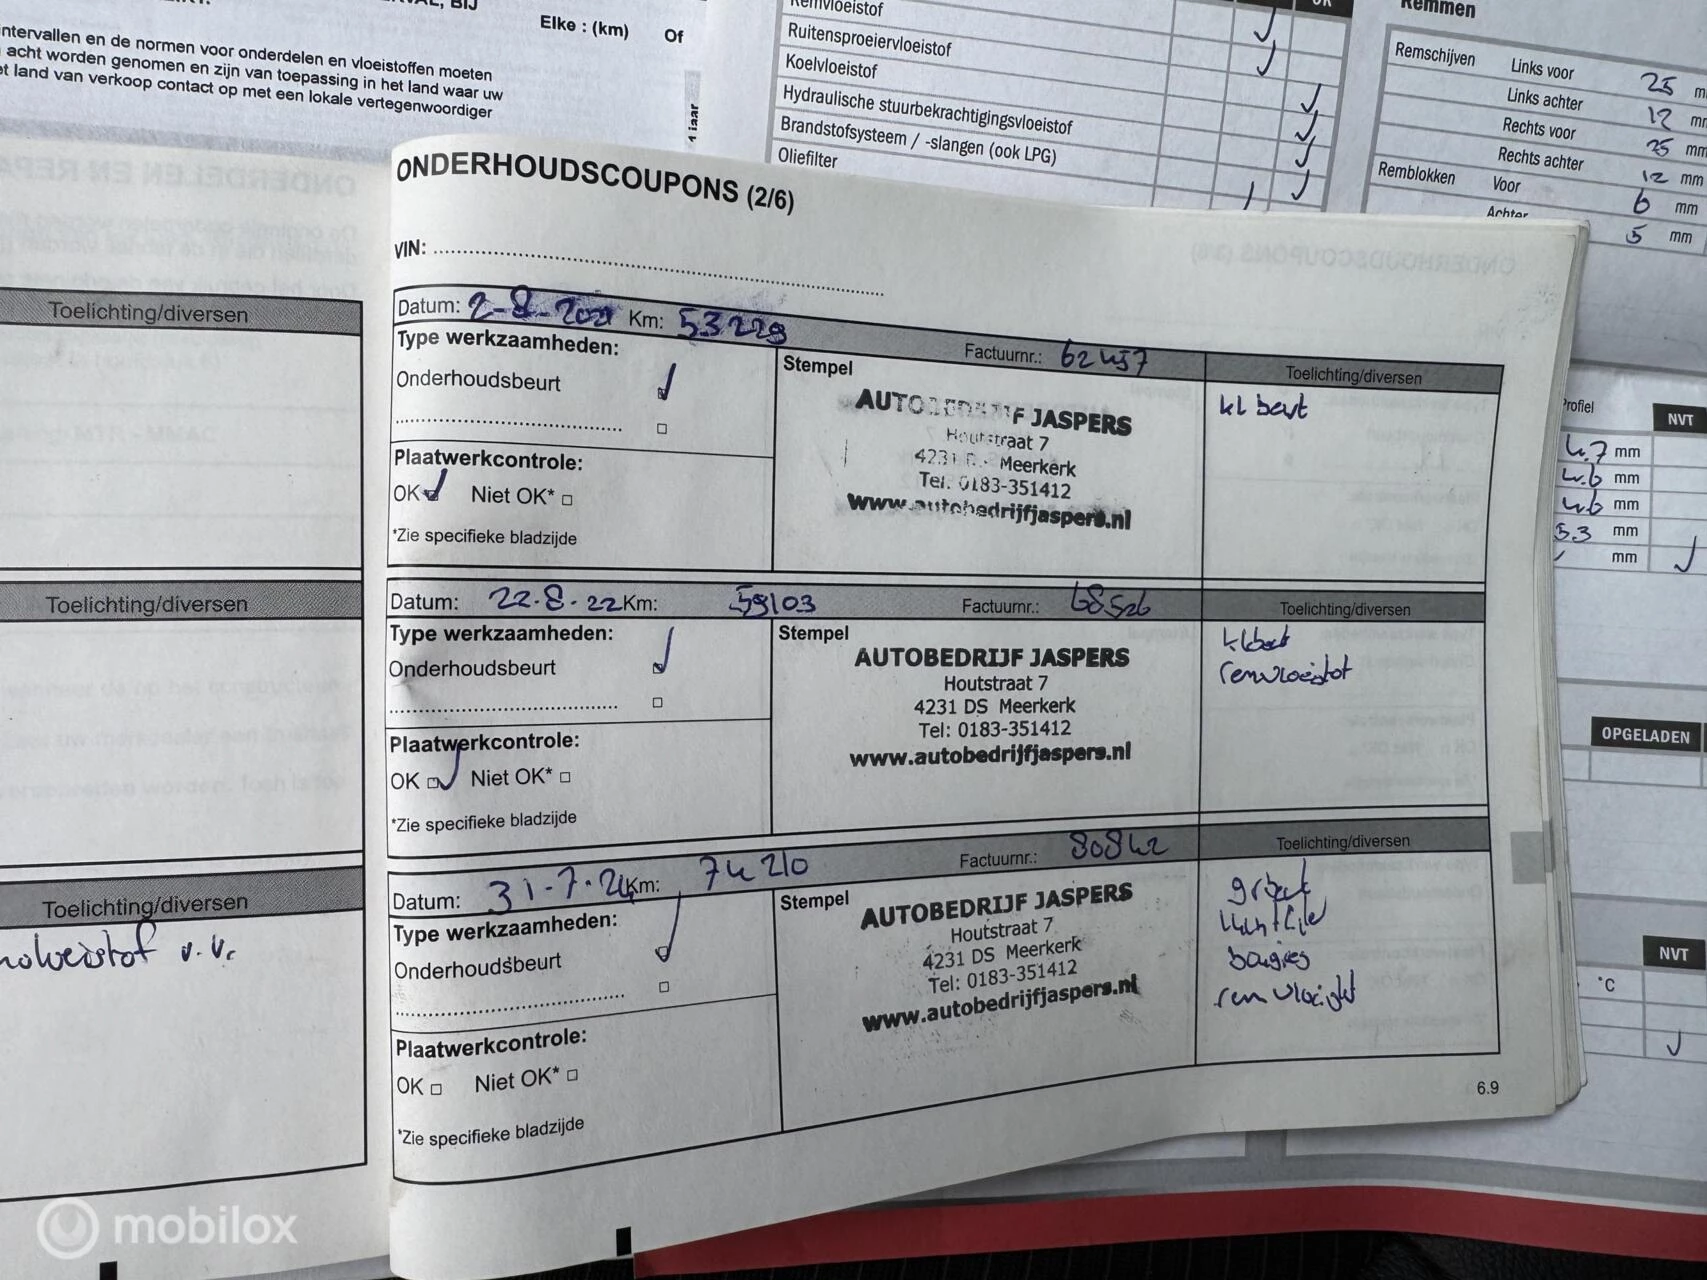 Elke : (km) Of
intervallen en de normen voor onderdelen en vloeistoffen moeten
acht worden genomen en zijn van toepassing in het land waar uw
et land van verkoop contact op met een lokale vertegenwoordiger
1 jaar
Remvloeistof
Ruitensproeiervloeistof
Koelvloeistof
Hydraulische stuurbekrachtigingsvloeistof
Brandstofsysteem / -slangen (ook LPG)
Oliefilter
Remmen
Remschijven Links voor 25 mm
Links achter 12 mm
Rechts voor 25 mm
Rechts achter 12 mm
Remblokken Voor 6 mm
Achter 5 mm
Profiel NVT
4.7 mm
4.6 mm
4.6 mm
5.3 mm
mm
OPGELADEN
NVT
°C
Toelichting/diversen
Toelichting/diversen
Toelichting/diversen
v.v.
ONDERHOUDSCOUPONS (2/6)
VIN:
Datum: 2-8-2021 Km: 53229 Factuurnr.: 62457 Toelichting/diversen
Type werkzaamheden:
Onderhoudsbeurt
Plaatwerkcontrole:
OK Niet OK*
*Zie specifieke bladzijde
Stempel
AUTOBEDRIJF JASPERS
Houtstraat 7
4231 D. Meerkerk
Tel: 0183-351412
www.autobedrijfjaspers.nl
kl beurt
Datum: 22-8-22 Km: 59103 Factuurnr.: 68526 Toelichting/diversen
Type werkzaamheden:
Onderhoudsbeurt
Plaatwerkcontrole:
OK Niet OK*
*Zie specifieke bladzijde
Stempel
AUTOBEDRIJF JASPERS
Houtstraat 7
4231 DS Meerkerk
Tel: 0183-351412
www.autobedrijfjaspers.nl
kl beurt
remvloeistof
Datum: 31-7-24 Km: 74210 Factuurnr.: 80842 Toelichting/diversen
Type werkzaamheden:
Onderhoudsbeurt
Plaatwerkcontrole:
OK Niet OK*
*Zie specifieke bladzijde
Stempel
AUTOBEDRIJF JASPERS
Houtstraat 7
4231 DS Meerkerk
Tel: 0183-351412
www.autobedrijfjaspers.nl
gr beurt
luchtfilter
bougies
remvloeistof
6.9
mobilox